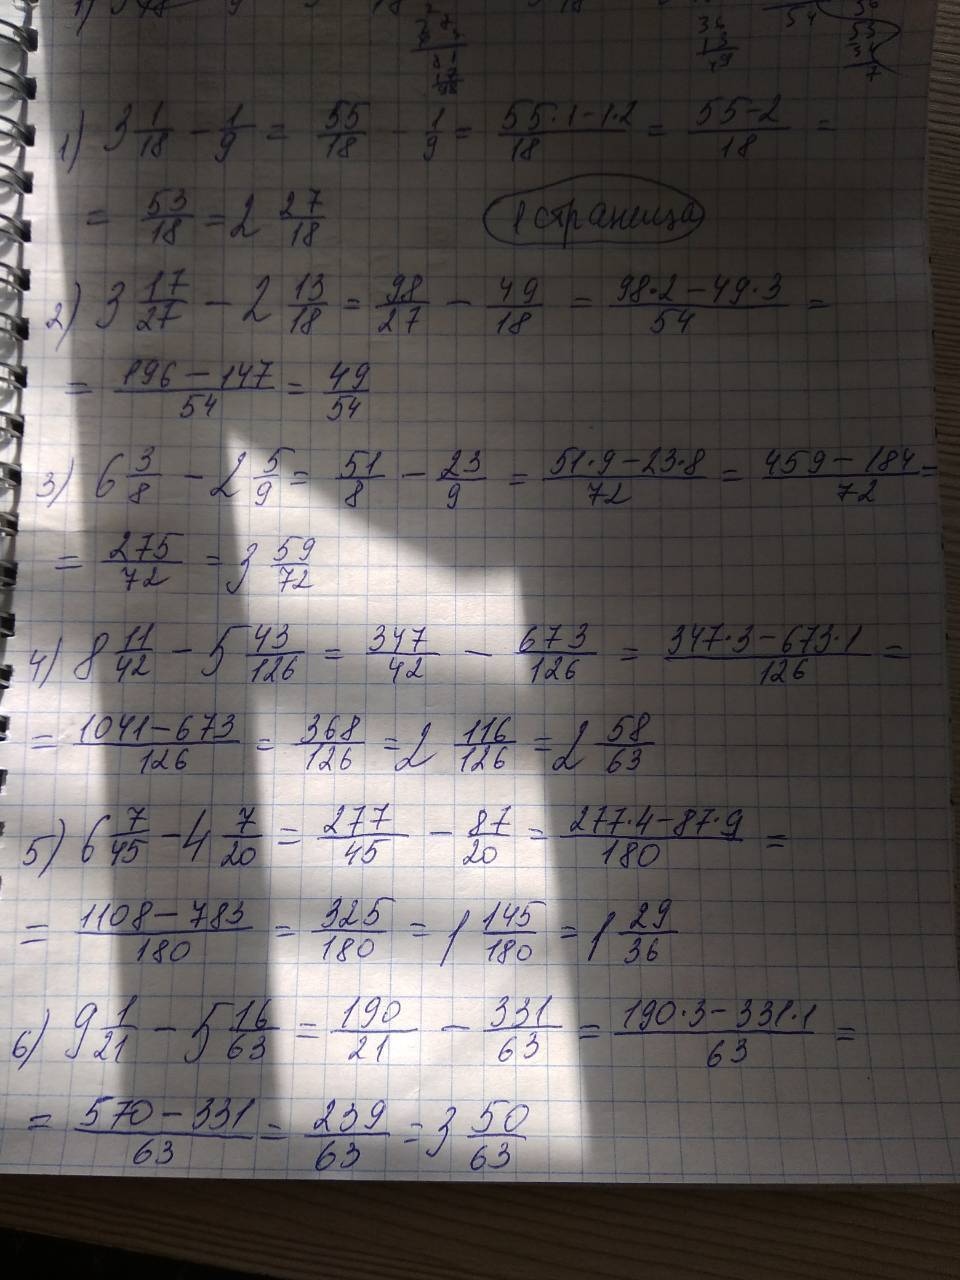 1) 3 1/18 - 1/9 = 55/18 - 1/9 = (55·1-1·2)/18 = (55-2)/18 =
= 53/18 = 2 27/18
1 страница
2) 3 17/27 - 2 13/18 = 98/27 - 49/18 = (98·2-49·3)/54 =
= (196-147)/54 = 49/54
3) 6 3/8 - 2 5/9 = 51/8 - 23/9 = (51·9-23·8)/72 = (459-184)/72 =
= 275/72 = 3 59/72
4) 8 11/42 - 5 43/126 = 347/42 - 673/126 = (347·3-673·1)/126 =
= (1041-673)/126 = 368/126 = 2 116/126 = 2 58/63
5) 6 7/45 - 4 7/20 = 277/45 - 87/20 = (277·4-87·9)/180 =
= (1108-783)/180 = 325/180 = 1 145/180 = 1 29/36
6) 9 1/21 - 5 16/63 = 190/21 - 331/63 = (190·3-331·1)/63 =
= (570-331)/63 = 239/63 = 3 50/63